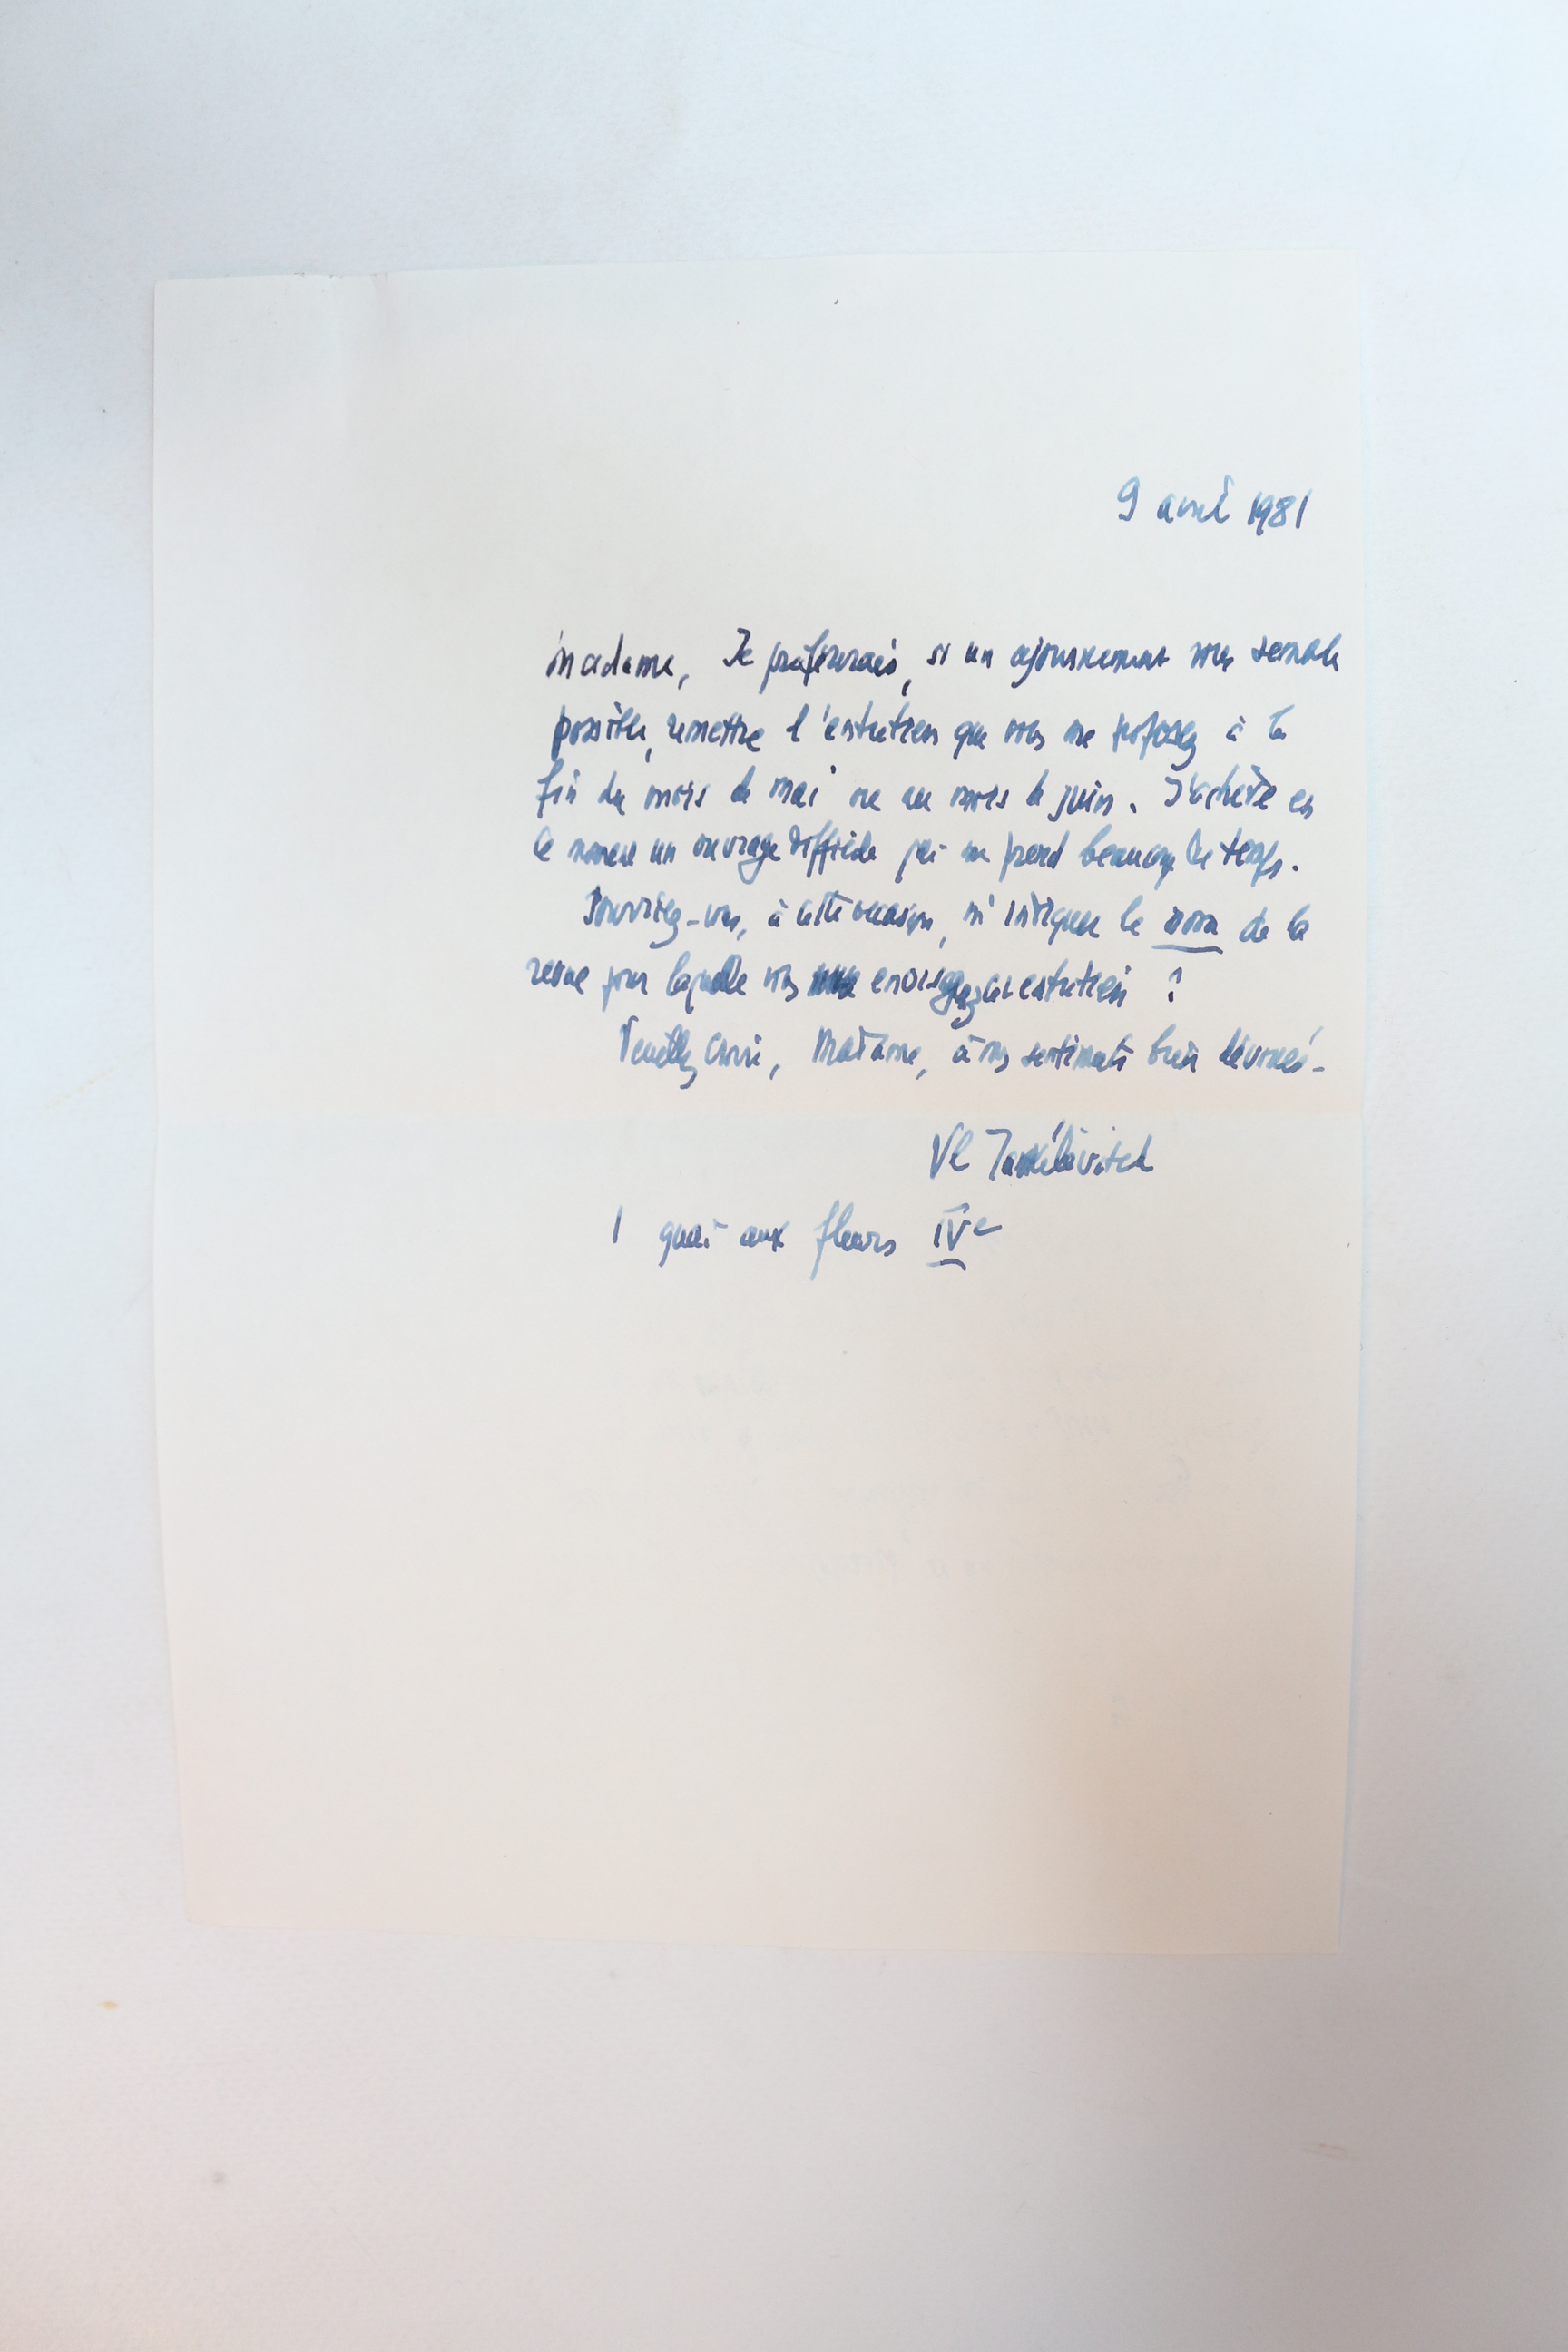 9 avril 1981
Madame, Je préférerais, si un ajournement vous semble
possible, remettre l'entretien que vous me proposez à la
fin du mois de mai ou au mois de juin. J'achève en
ce moment un ouvrage difficile qui me prend beaucoup de temps.
Pourriez-vous, à cette occasion, m'indiquer le nom de la
revue pour laquelle vous envisagez cet entretien ?
Veuillez croire, Madame, à mes sentiments bien dévoués.
Vl Jankélévitch
1 quai aux fleurs IVe